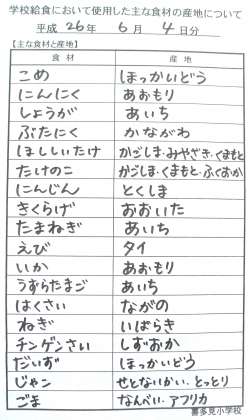 学校給食において使用した主な食材の産地について
平成 26年 6月 4日分
【主な食材と産地】
食材 産地
こめ ほっかいどう
にんにく あおもり
しょうが あいち
ぶたにく かながわ
ほししいたけ かごしま・みやざき・くまもと
たけのこ かごしま・くまもと・ふくおか
にんじん とくしま
きくらげ おおいた
たまねぎ あいち
えび タイ
いか あおもり
うずらたまご あいち
はくさい ながの
ねぎ いばらき
チンゲンさい しずおか
だいず ほっかいどう
じゃこ せとないかい、とっとり
ごま なんべい・アフリカ
喜多見小学校